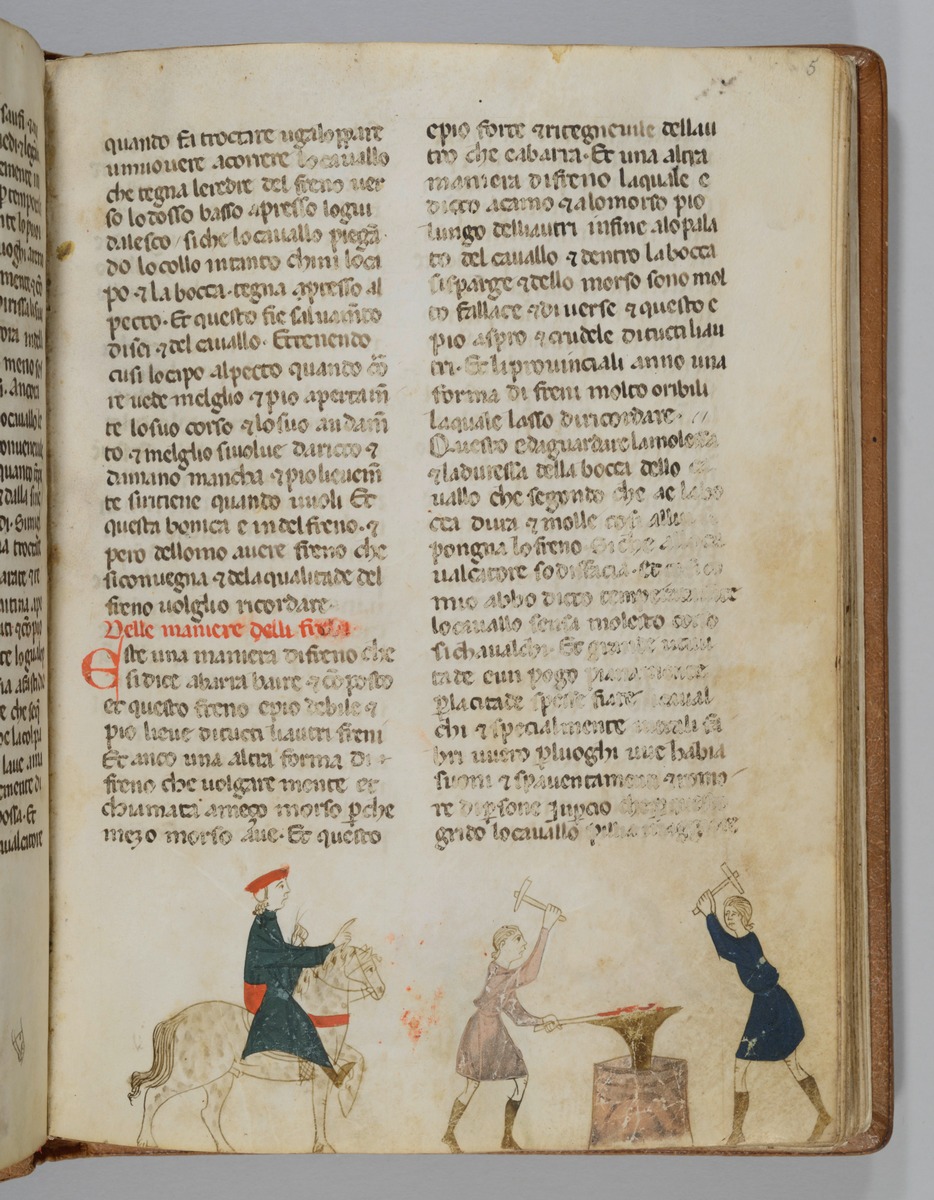 5
quando fa troctare u galoppare
u muouere a correre lo cauallo
che tegna le redie del freno uer
so lo dosso basso apresso lo gui
dalesco / si che lo cauallo piegã
do lo collo in tanto chini lo ca
po ⁊ la bocca tegna apresso al
pecto. Et questo fie saluamẽto
di sei ⁊ del cauallo. Et tenendo
cusi lo capo al pecto quando cor
re uede melglio ⁊ pio apertam̃
te lo suo corso ⁊ lo suo andam̃
to ⁊ melglio si uolue da ricto ⁊
da mano mancha ⁊ pio lieuem̃
te si ritiene quando uuoli Et
questa bonita e in del freno. ⁊
pero dell omo auere freno che
si conuegna ⁊ de la qualitade del
freno uolglio ricordare.
Delle maniere delli freni
Este una maniera di freno che
si dice a barra
et questo freno e pio debile ⁊
pio lieue di tucti li autri freni
Et anco una altra forma di
freno che uolgare mente et
chiamata a mezo morso ꝑche
mezo morso aue. Et questo
e pio forte ⁊ ritegneuile dell au
tro che e a barra. Et una altra
maniera di freno la quale e
dicto a camo ⁊ a lo morso pio
lungo delli autri infine a lo pala
to del cauallo ⁊ dentro la bocca
si sparge ⁊ dello morso sono mol
to fallace ⁊ diuerse ⁊ questo e
pio aspro ⁊ crudele di tucti li au
tri. Et li prouinciali anno una
forma di freni molto oribili
la quale lasso di ricordare.
Questo e da guardare la molessa
⁊ la duressa della bocca dello ca
uallo che segondo che ae la bo
cca dura ⁊ molle cosi
pongna lo freno Si che
ualcatore sodisfacia. Et
mio abbo dicto
lo cauallo sensa molesto
si chaualchi. Et grande
tade e un pogo piana mente
ꝑ la citade spesse fiate caual
chi ⁊ spetialmente fa
bri uuero ꝑ luoghi u ue habia
suoni ⁊ spauentamenti ⁊ romo
re di ꝑsone
grido lo cauallo